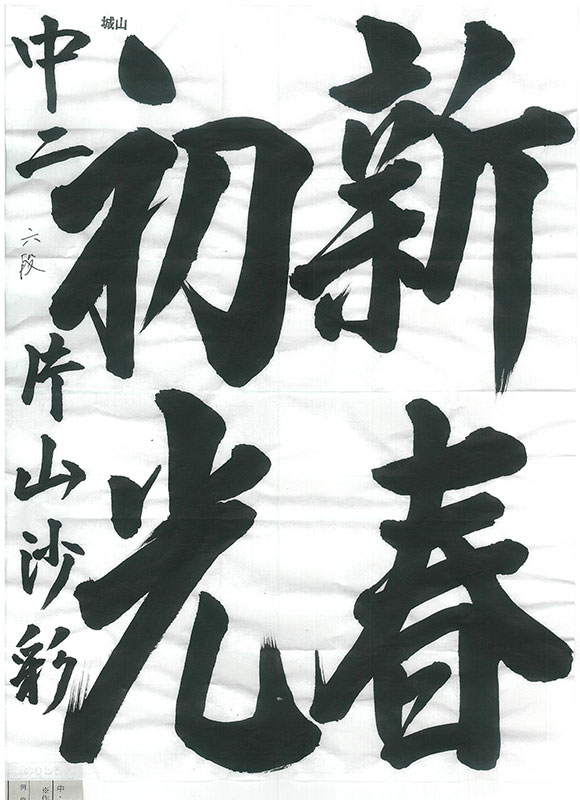 新春
初光
城山
中二 六段 片山沙彩